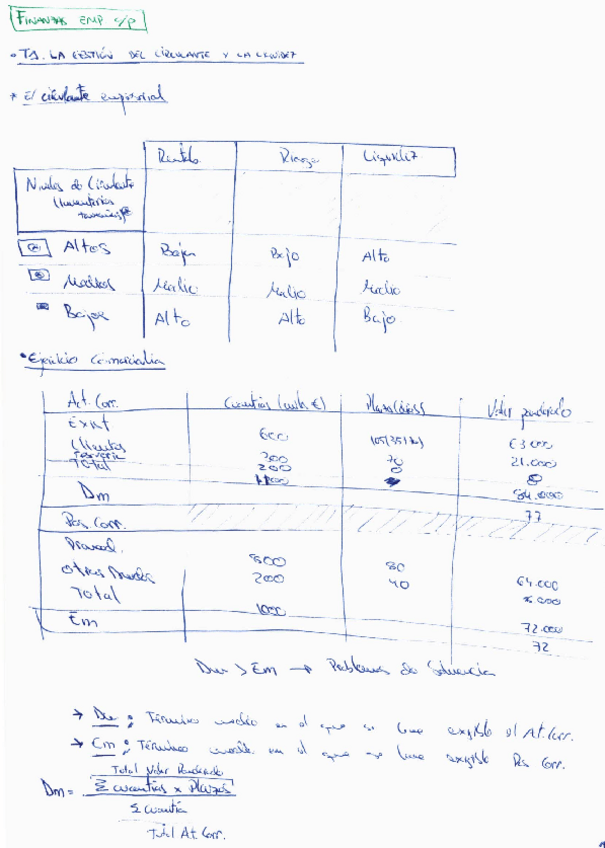 FINANZAS EMP c/p
• T1. LA GESTIÓN DEL CIRCULANTE Y LA LIQUIDEZ
* El circulante empresarial
Riesgo Liquidez
Niveles de Circulante
(Inventarios
Altos Bajo Bajo Alto
Medios Medio Medio Medio
Bajos Alto Alto Bajo
• Ejercicio Comercialia
Act. Corr. Cuantías Plazo (días) Valor ponderado
Exist 600 63.000
Clientes 300 70 21.000
Tesorería 200 0 0
Total 84.000
Dm 77
Pas. Corr.
Proveed. 800 80 64.000
Otras Deudas 200 40
Total 1000 72.000
Em 72
Dm > Em → Problemas de Solvencia
→ Dm: Término medio en el que se hace exigible el At. Corr.
→ Em: Término medio en el que se hace exigible Pas Corr.
Total Valor Ponderado
Dm = Σ cuantías x Plazos
Σ cuantía
Total At. Corr.